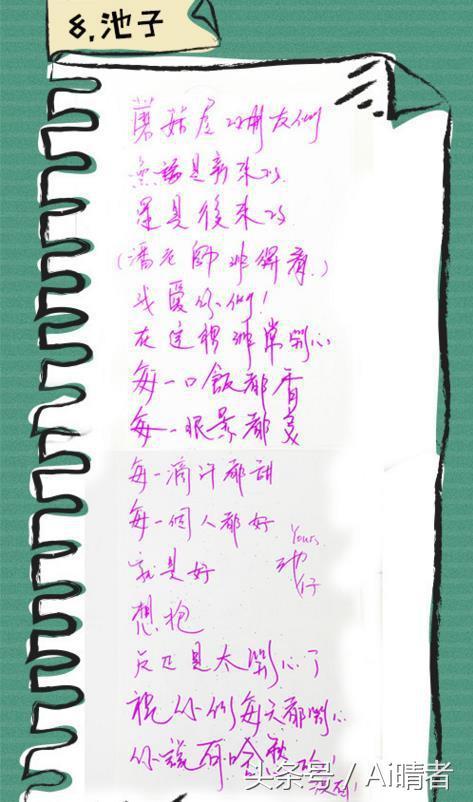 8.池子
蘑菇屋的朋友們
無論是新來的
還是後來的
(潘老師非得看)
我愛你們!
在這裡非常開心
每一口飯都香
每一眼景都美
每一滴汗都甜
每一個人都好
就是好
Yours
池仔
想抱
反正是太開心了
祝你們每天都開心
你說
沒到!
头条号 / Ai晴者